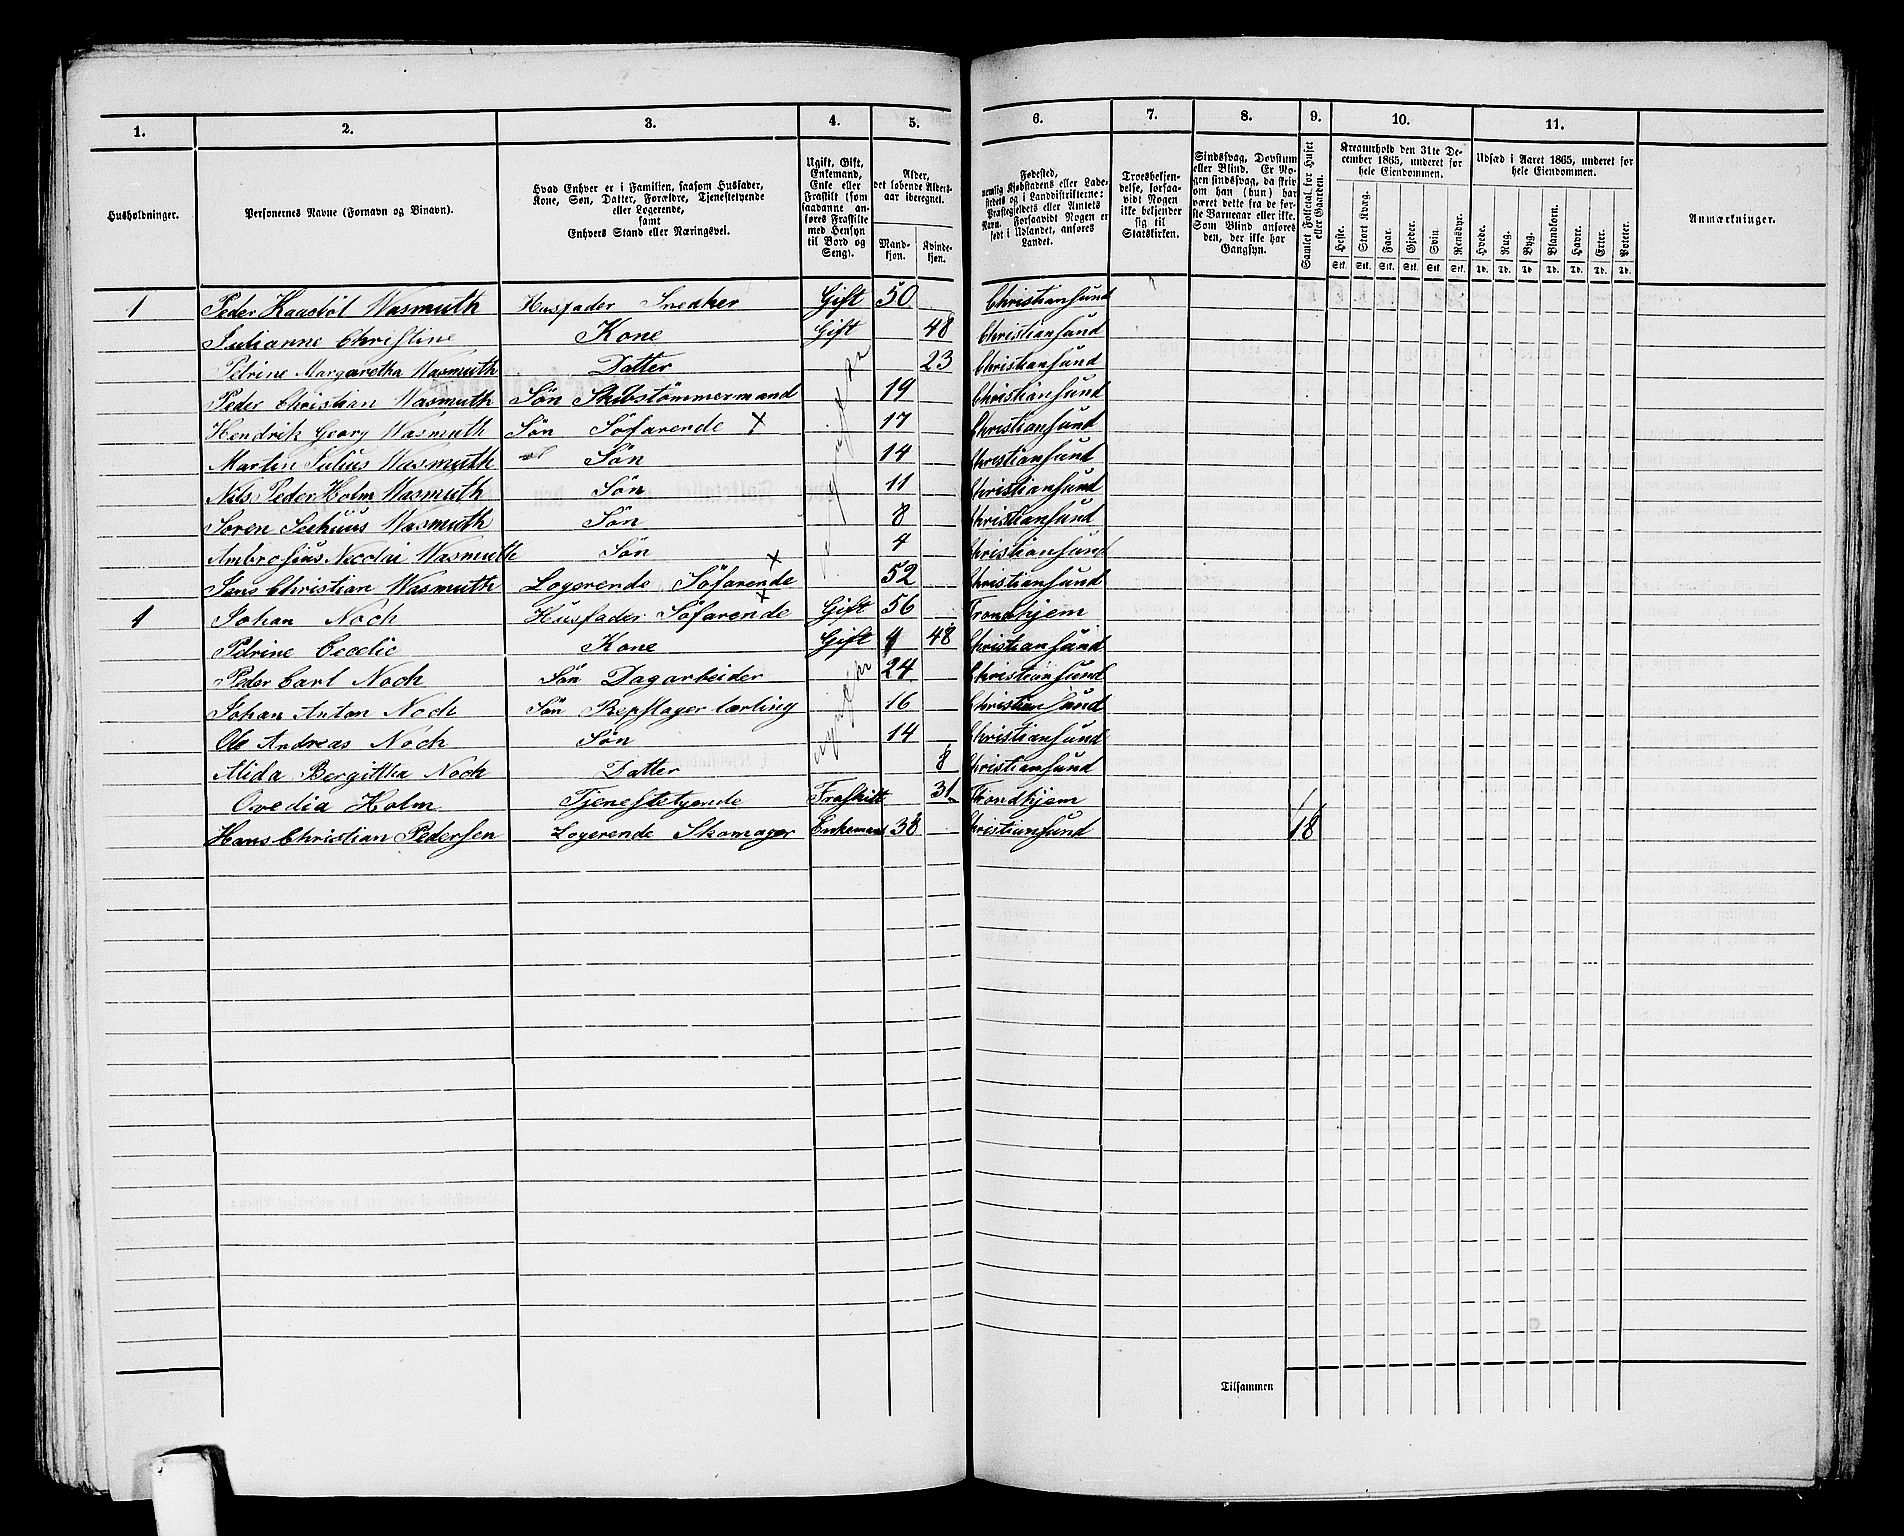 1. 2. 3. 4. 5. 6. 7. 8. 9. 10. 11.
Husholdninger.
Personernes Navne (Fornavn og Binavn).
Hvad Enhver er i Familien, saasom Husfader,
Kone, Søn, Datter, Forældre, Tjenestetyende
eller Logerende,
samt
Enhvers Stand eller Næringsvei.
Ugift, Gift,
Enkemand,
Enke eller
Fraskilt (som
saadanne an-
føres Fraskilte
med Hensyn
til Bord og
Seng).
Alder,
det løbende Alders-
aar iberegnet.
Mand-
kjøn.
Kvinde-
kjøn.
Fødested,
nemlig Kjøbstadens eller Lade-
stedets og i Landdistrikterne:
Præstegjeldets eller Amtets
Navn. Forsaavidt Nogen er
født i Udlandet, anføres
Landet.
Troesbekjen-
delse, forsaa-
vidt Nogen
ikke bekjender
sig til
Statskirken.
Sindssvag, Døvstum
eller Blind. Er No-
gen sindssvag, da skriv
om han (hun) har
været dette fra de før-
ste Barneaar eller ikke.
Som Blind anføres
den, der ikke har
Gangsyn.
Samlet Folketal for Huset
eller Gaarden.
Kreaturhold den 31te De-
cember 1865, underet for
hele Eiendommen.
Heste. Stort Kvæg. Faar. Gjeder. Svin. Rensdyr.
Stk. Stk. Stk. Stk. Stk. Stk.
Udsæd i Aaret 1865, underet for
hele Eiendommen.
Hvede. Rug. Byg. Blandkorn. Havre. Erter. Poteter.
Td. Td. Td. Td. Td. Td. Td.
Anmærkninger.
1 Peder Wasmuth Husfader Snedker Gift 50 Christiansund
Julianne Christine Kone Gift 48 Christiansund
Petrine Margaretha Wasmuth Datter 23 Christiansund
Peder Christian Wasmuth Søn Skibstømmermand 19 Christiansund
Hendrik Georg Wasmuth Søn Söfarende X 17 Christiansund
Martin Julius Wasmuth Søn 14 Christiansund
Nils Peder Holm Wasmuth Søn 11 Christiansund
Soren Seehuus Wasmuth Søn 8 Christiansund
Ambrosius Nicolai Wasmuth Søn 4 Christiansund
Jens Christian Wasmuth Logerende Söfarende X 52 Christiansund
ugifte
1 Johan Noch Husfader Söfarende X Gift 56 Trondhjem
Petrine Cecelie Kone Gift 48 Christiansund
Peder Carl Noch Søn Dagarbeider 24 Christiansund
Johan Anton Noch Søn Repslager lærling 16 Christiansund
Ole Andreas Noch Søn 14 Christiansund
Alida Bergittha Noch Datter 8 Christiansund
Ovedia Holm Tjenestetyende Fraskilt 31 Trondhjem
Hans Christian Pedersen Logerende Skomager Enkemand 38 Christiansund 18
Tilsammen